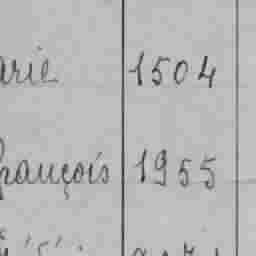 arie 1504
François 1955